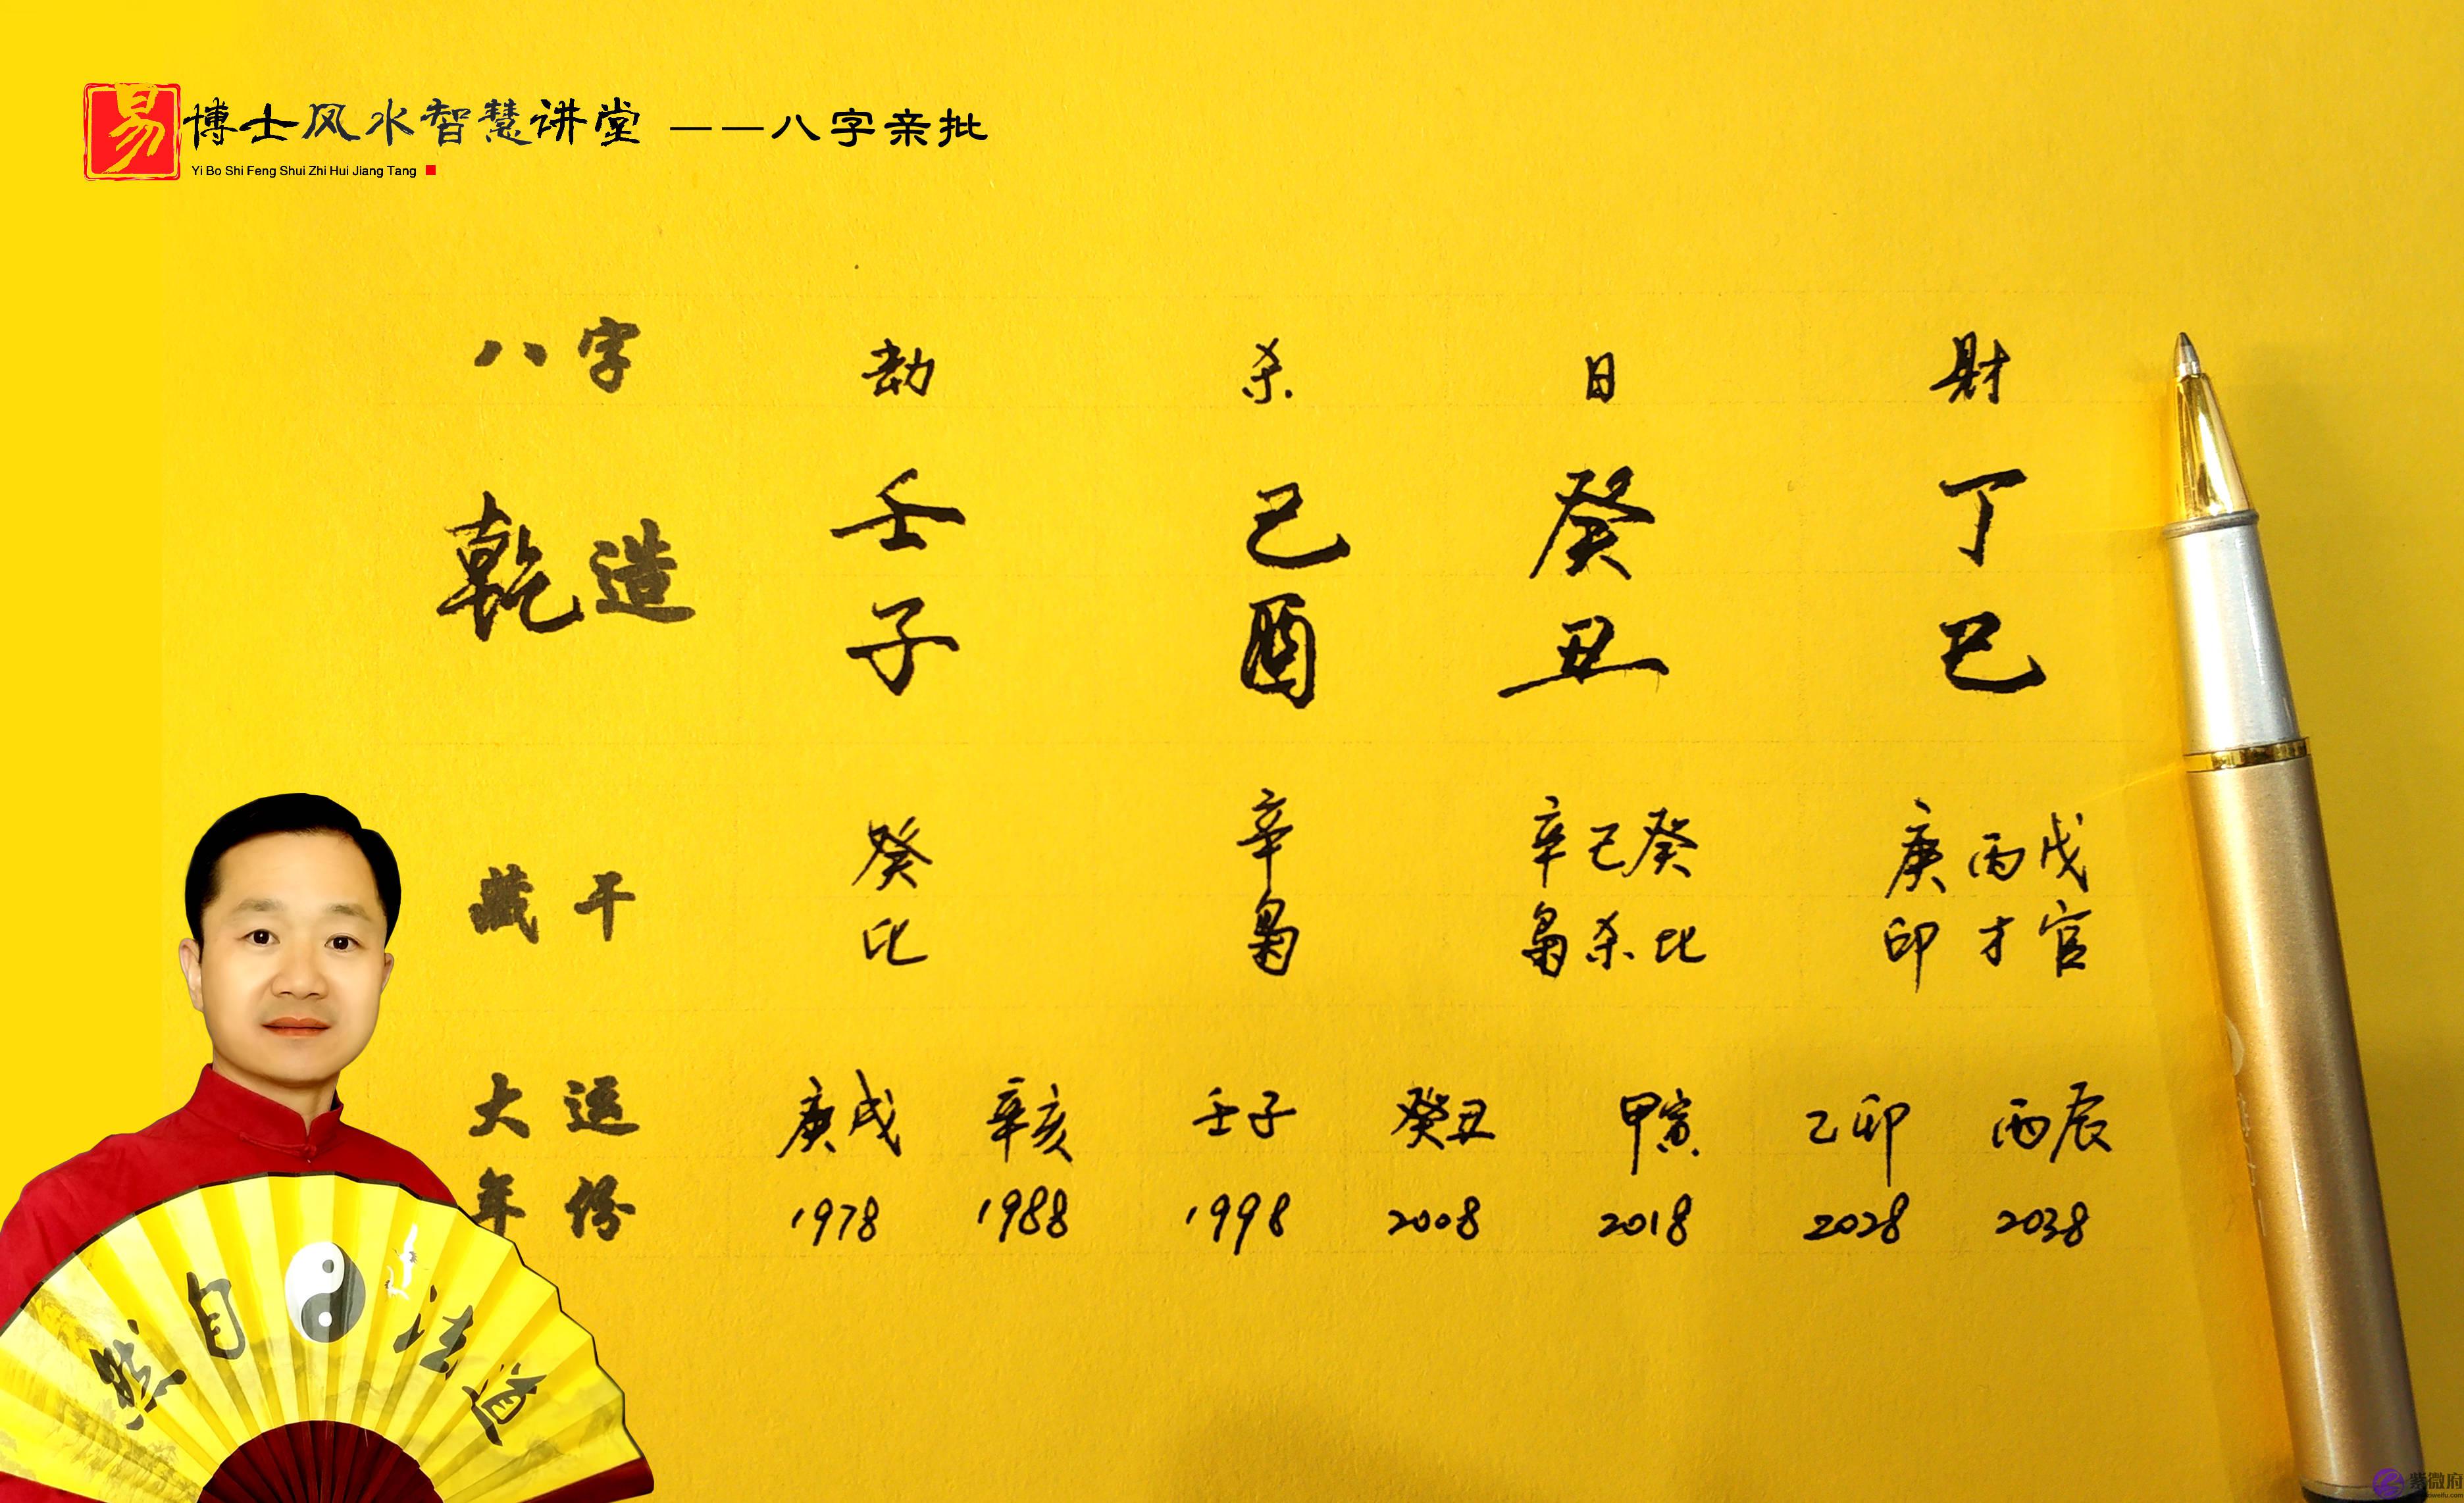 易博士风水智慧讲堂 ——八字亲批
Yi Bo Shi Feng Shui Zhi Hui Jiang Tang
八字 劫 杀 日 财
乾造 壬 己 癸 丁
子 酉 丑 巳
藏干 癸 辛 辛己癸 庚丙戊
比 枭 枭杀比 印才官
大运 庚戌 辛亥 壬子 癸丑 甲寅 乙卯 丙辰
年份 1978 1988 1998 2008 2018 2028 2038
然自法道
紫微府